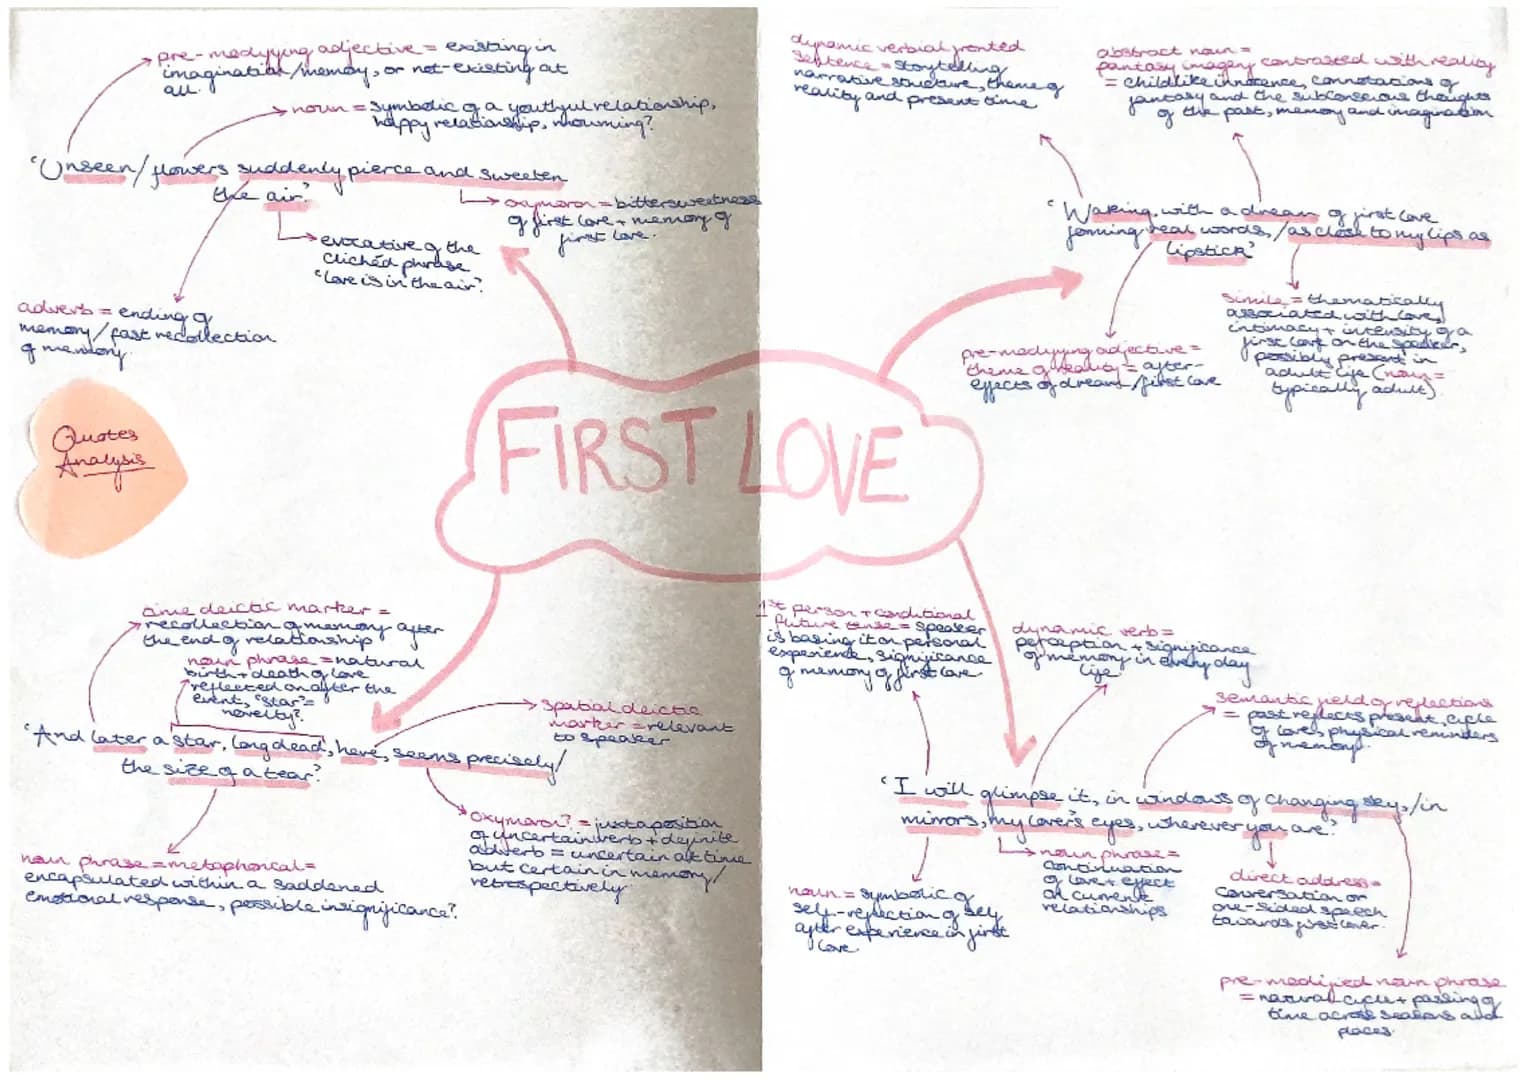 pre-modifying adjective = existing in
imagination/memory, or not-existing at
all.
noun = symbolic of a youthful relationship,
happy relationship, mourning?
'Unseen/flowers suddenly pierce and sweeten
the air.'
oxymoron = bittersweetness
of first love + memory of
first love.
evocative of the
clichéd phrase
"love is in the air".
adverb = ending of
memory/fast recollection
of memory.
Quotes
Analysis
FIRST LOVE
dynamic verbial fronted
sentence = storytelling
narrative structure, theme of
reality and present time
abstract noun =
fantasy imagery contrasted with reality
= childlike innocence, connotations of
fantasy and the subconscious thoughts
of the past, memory and imagination
'Waking, with a dream of first love
forming real words, /as close to my lips as
lipstick'
pre-modifying adjective =
theme of reality = after-
effects of dream/first love
simile = thematically
associated with love,
intimacy + intensity of a
first love on the speaker,
possibly present in
adult life (noun =
typically adult).
time deictic marker =
recollection of memory after
the end of relationship
noun phrase = natural
birth + death of love
reflected on after the
event, "star" =
novelty?
spatial deictic
marker = relevant
to speaker
'And later a star, long dead, here, seems precisely/
the size of a tear.'
oxymoron? = juxtaposition
of uncertain verb + definite
adverb = uncertain at time
but certain in memory/
retrospectively.
noun phrase = metaphorical =
encapsulated within a saddened
emotional response, possible insignificance?
1st person + conditional
future tense = speaker
is basing it on personal
experience, significance
of memory of first love.
dynamic verb =
perception + significance
of memory in every day
life
semantic field of reflections
= past reflects present, cycle
of love, physical reminders
of memory.
'I will glimpse it, in windows of changing sky,/in
mirrors, my lover's eyes, wherever you are.'
noun = symbolic of
self-reflection of self
after experience in first
love.
noun phrase =
continuation
of love + effect
on current
relationships
direct address =
conversation or
one-sided speech
towards first lover.
pre-modified noun phrase
= natural cycle + passing of
time across seasons and
places.